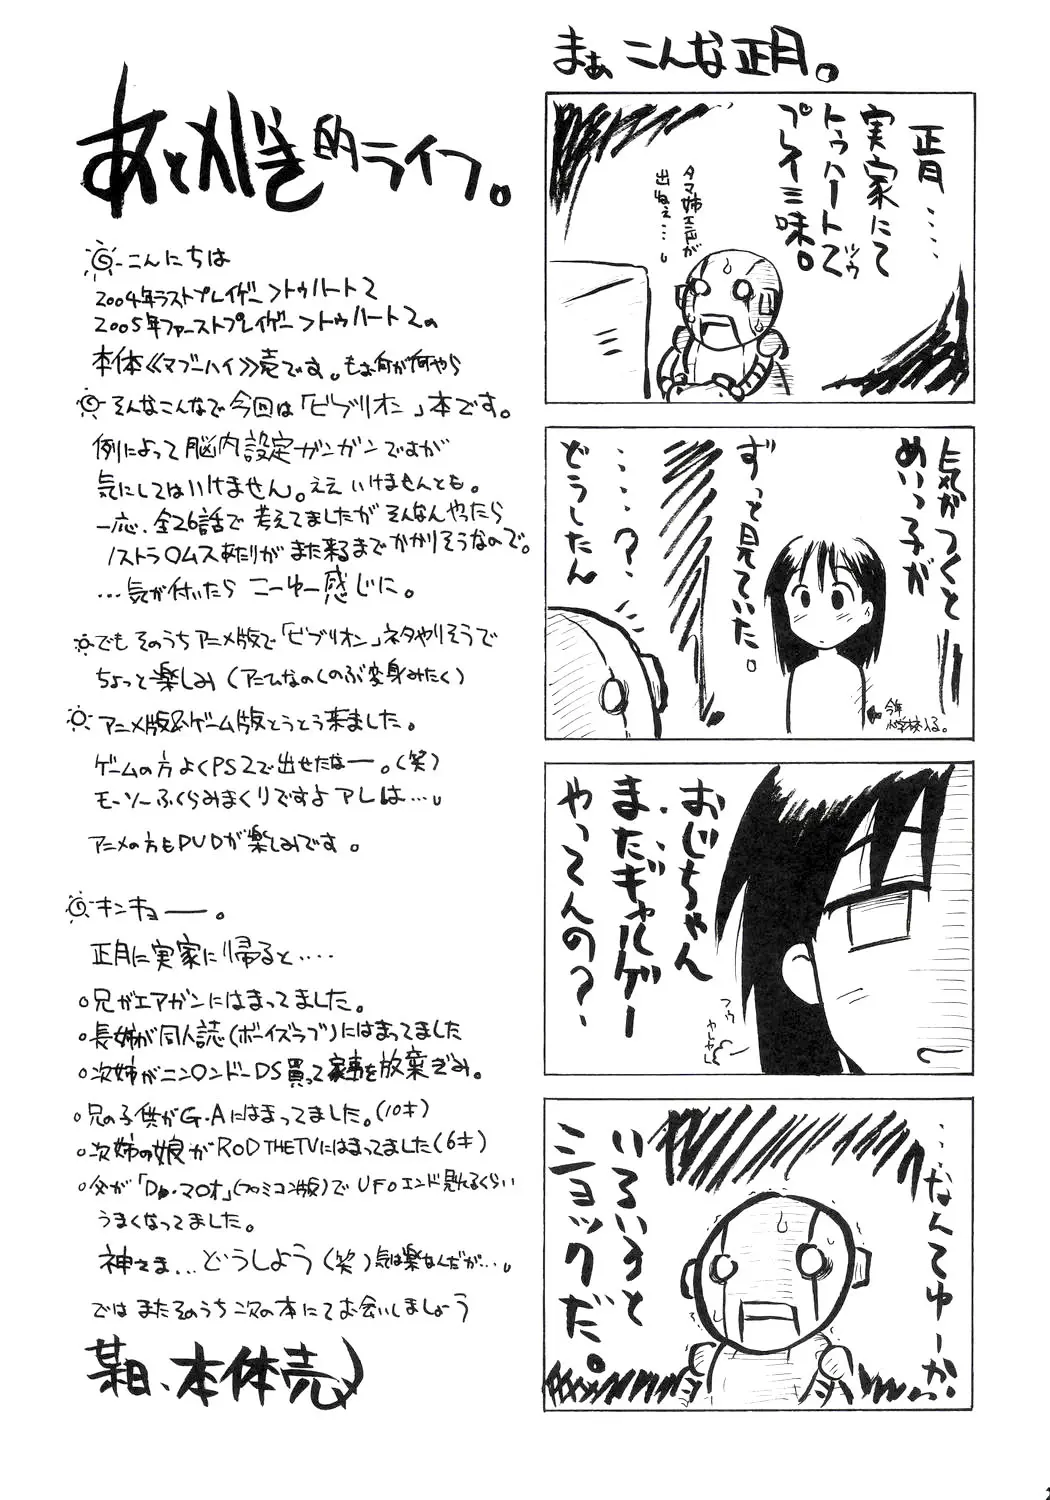 まぁこんな正月。
正月....
実家にて
トゥハート2ツウ
プレイ三昧。
タマ姉エロが
出ねぇ...。
気がつくと
めいっ子が
ずっと見ていた。
....?
どうしたん
今年
小学校入る。
おじちゃん
またギャルゲー
やってんの?
フゥ
ヤレヤレ
...なんてゆーか
いろいろと
ショックだ。
あとがき的ライフ。
こんにちは
2004年ラストプレイゲー>トゥハート2
2005年ファーストプレイゲー>トゥハート2の
本体《マブーハイ》売です。もぉ何が何やら
そんなこんなで今回は「ビブリオン」本です。
例によって脳内設定ガンガンですが
気にしてはいけません。ええ いけませんとも。
一応、全26話で考えてましたがそんなんやったら
ノストラ○ムスあたりがまた来るまでかかりそうなので。
...気が付いたらこーゆー感じに。
でもそのうちアニメ版で「ビブリオン」ネタやりそうで
ちょっと楽しみ(アニムなのくのぶ変身みたく)
アニメ版&ゲーム版とうとう来ました。
ゲームの方よくPS2で出せたなー。(笑)
モーソーふくらみまくりですよアレは...。
アニメの方もDVDが楽しみです。
キンキョー。
正月に実家に帰ると....
○兄がエアガンにはまってました。
○長姉が同人誌(ボーイズラブ)にはまってました
○次姉がニン○ンドーDS買って家事を放棄ぎみ。
○兄の子供がG・Aにはまってました。(10才)
○次姉の娘がROD THE TVにはまってました(6才)
○父が「Dr.マ○オ」(ファミコン版)でUFOエンド見れるくらい
うまくなってました。
神さま...どうしよう(笑)気は楽なんだが...。
ではまたそのうち次の本にてお会いしましょう
某日、本体売